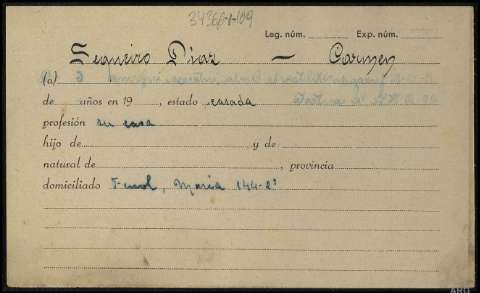 34966-1-109
Leg. núm. Exp. núm.
Seqneiro Díaz — Carmen
(a)
de años en 19 , estado casada
profesión su casa
hijo de y de
natural de , provincia
domiciliado Ferrol, María 144-2º